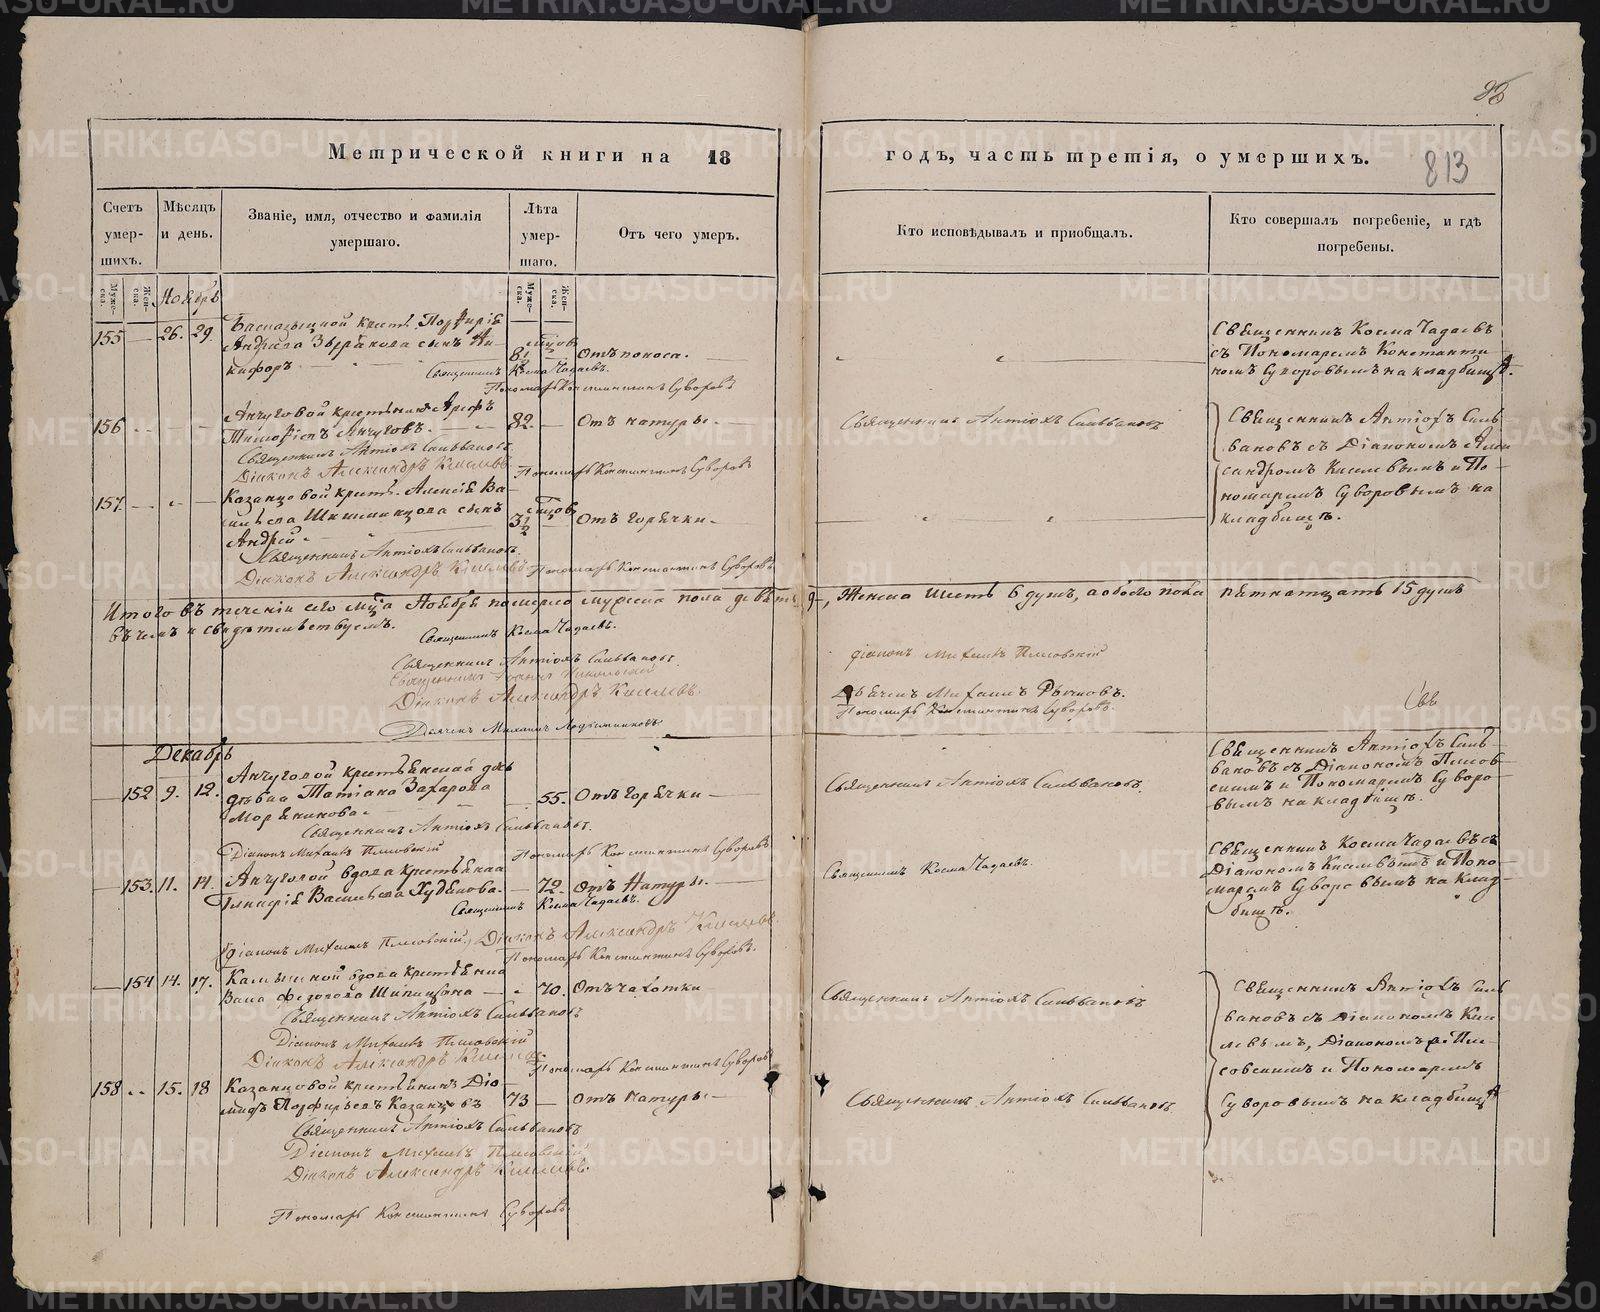 85
813
Метрической книги на 18
годъ, часть третія, о умершихъ.
Счетъ умер- шихъ.
Мѣсяцъ и день.
Званіе, имя, отчество и фамилія умершаго.
Лѣта умер- шаго.
Отъ чего умеръ.
Кто исповѣдывалъ и пріобщалъ.
Кто совершалъ погребеніе, и гдѣ погребены.
Муже- ска.
Жен- ска.
Муже- ска.
Жен- ска.
Ноябрь
155 — 26. 29.
крест. Порфирія
Андреева Зырянова сынъ Ни-
кифоръ
8½ — Отъ поноса.
Священникъ Косма Чадаевъ.
Пономарь Константинъ Суворовъ
Священникъ Косма Чадаевъ
съ Пономаремъ Константи-
номъ Суворовымъ на кладбищѣ.
156
Анчуговой крестьянинъ Арефъ
Тимофеевъ Анчуговъ.
82. — Отъ натуры.
Священникъ Антіохъ Сильвановъ
Діаконъ Александръ Киселевъ
Пономарь Константинъ Суворовъ
Священникъ Антіохъ Сильвановъ
Священникъ Антіохъ Силь-
вановъ съ Діакономъ Алек-
сандромъ Киселевымъ и По-
номаремъ Суворовымъ на
кладбищѣ.
157.
Казанцовой крест. Алексія Ва-
сильева сынъ
Андрей
3½ Отъ горячки.
Священникъ Антіохъ Сильвановъ.
Діаконъ Александръ Киселевъ
Пономарь Константинъ Суворовъ
Итого въ теченіи сего мца Ноября померло мужеска пола девять 9, Женска шесть 6 душъ, а обоего пола пятнатцать 15 душъ
въ чемъ и свидѣтельствуемъ.
Священникъ Косма Чадаевъ.
Священникъ Антіохъ Сильвановъ.
Священникъ Іоаннъ Никольскій
Діаконъ Александръ Киселевъ.
Дьячекъ Михаилъ
Діаконъ Михаилъ Плисовскій
Дьячекъ Михаилъ Рычковъ.
Пономарь Константинъ Суворовъ.
Декабрь
— 152 9. 12.
Анчуговой крестьянская дѣв-
Татіана Захарова
55. Отъ горячки
Священникъ Антіохъ Сильвановъ.
Діаконъ Михаилъ Плисовскій
Пономарь Константинъ Суворовъ
Священникъ Антіохъ Сильвановъ.
Священникъ Антіохъ Силь-
вановъ съ Діакономъ Плисов-
скимъ и Пономаремъ Суворо-
вымъ на кладбищѣ.
— 153. 11. 14.
Анчуговой вдова крестьянка
Гликерія Васильева Худякова.
72. Отъ Натуры.
Священникъ Косма Чадаевъ.
Діаконъ Михаилъ Плисовскій. Діаконъ Александръ Киселевъ
Пономарь Константинъ Суворовъ.
Священникъ Косма Чадаевъ.
Священникъ Косма Чадаевъ съ
Діакономъ Киселевымъ и Поно-
маремъ Суворовымъ на Клад-
бищѣ.
— 154 14. 17.
вдова крестьянка
Федорова Шипицына
70. Отъ чахотки
Священникъ Антіохъ Сильвановъ
Діаконъ Михаилъ Плисовскій
Діаконъ Александръ Киселевъ
Пономарь Константинъ Суворовъ
Священникъ Антіохъ Сильвановъ
Священникъ Антіохъ Силь-
вановъ съ Діакономъ Кис-
левымъ, Діакономъ Пли-
совскимъ и Пономаремъ
Суворовымъ на кладбищѣ
158 15. 18
Казанцовой крестьянинъ Діо-
мидъ Порфирьевъ Казанцовъ
73 — Отъ натуры
Священникъ Антіохъ Сильвановъ
Діаконъ Михаилъ Плисовскій
Діаконъ Александръ Киселевъ.
Пономарь Константинъ Суворовъ.
Священникъ Антіохъ Сильвановъ
METRIKI.GASO-URAL.RU